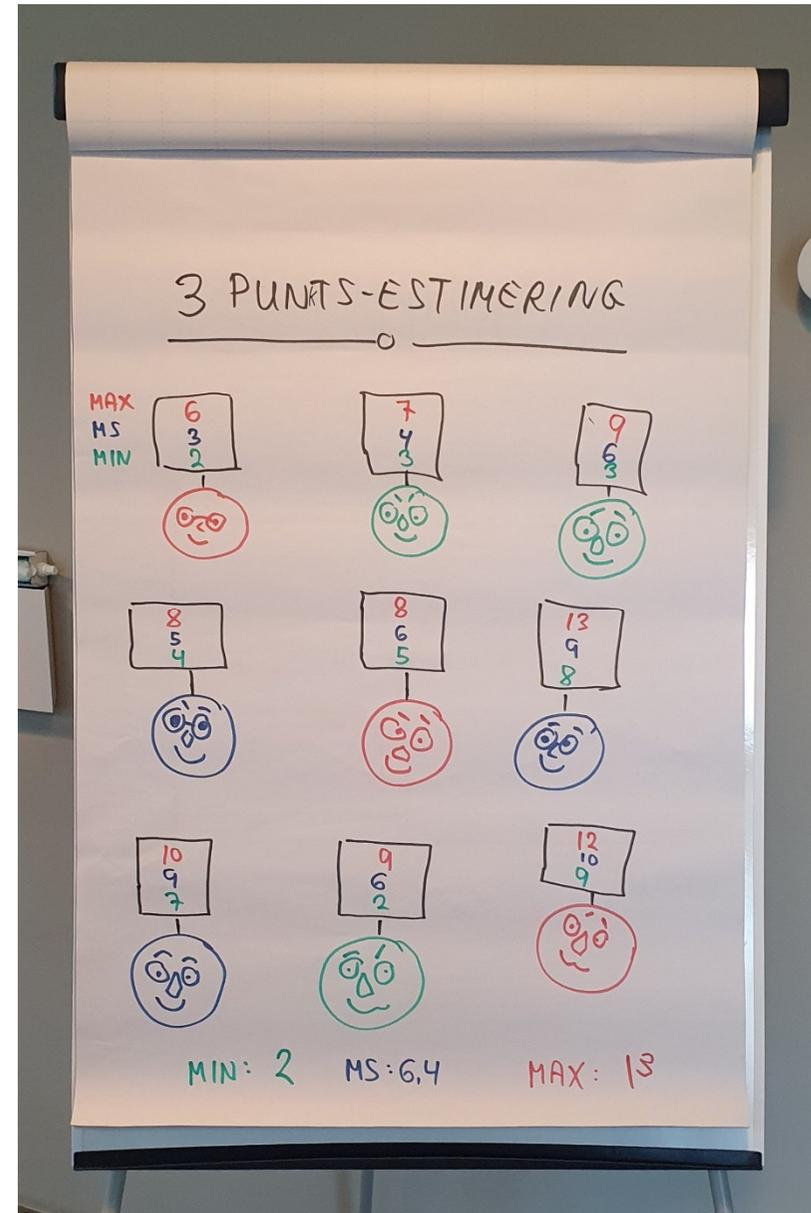 3 PUNKTS-ESTIMERING
MAX
MS
MIN
6
3
2
7
4
3
9
6
3
8
5
4
8
6
5
13
9
8
10
9
7
9
6
2
12
10
9
MIN: 2 MS: 6,4 MAX: 13